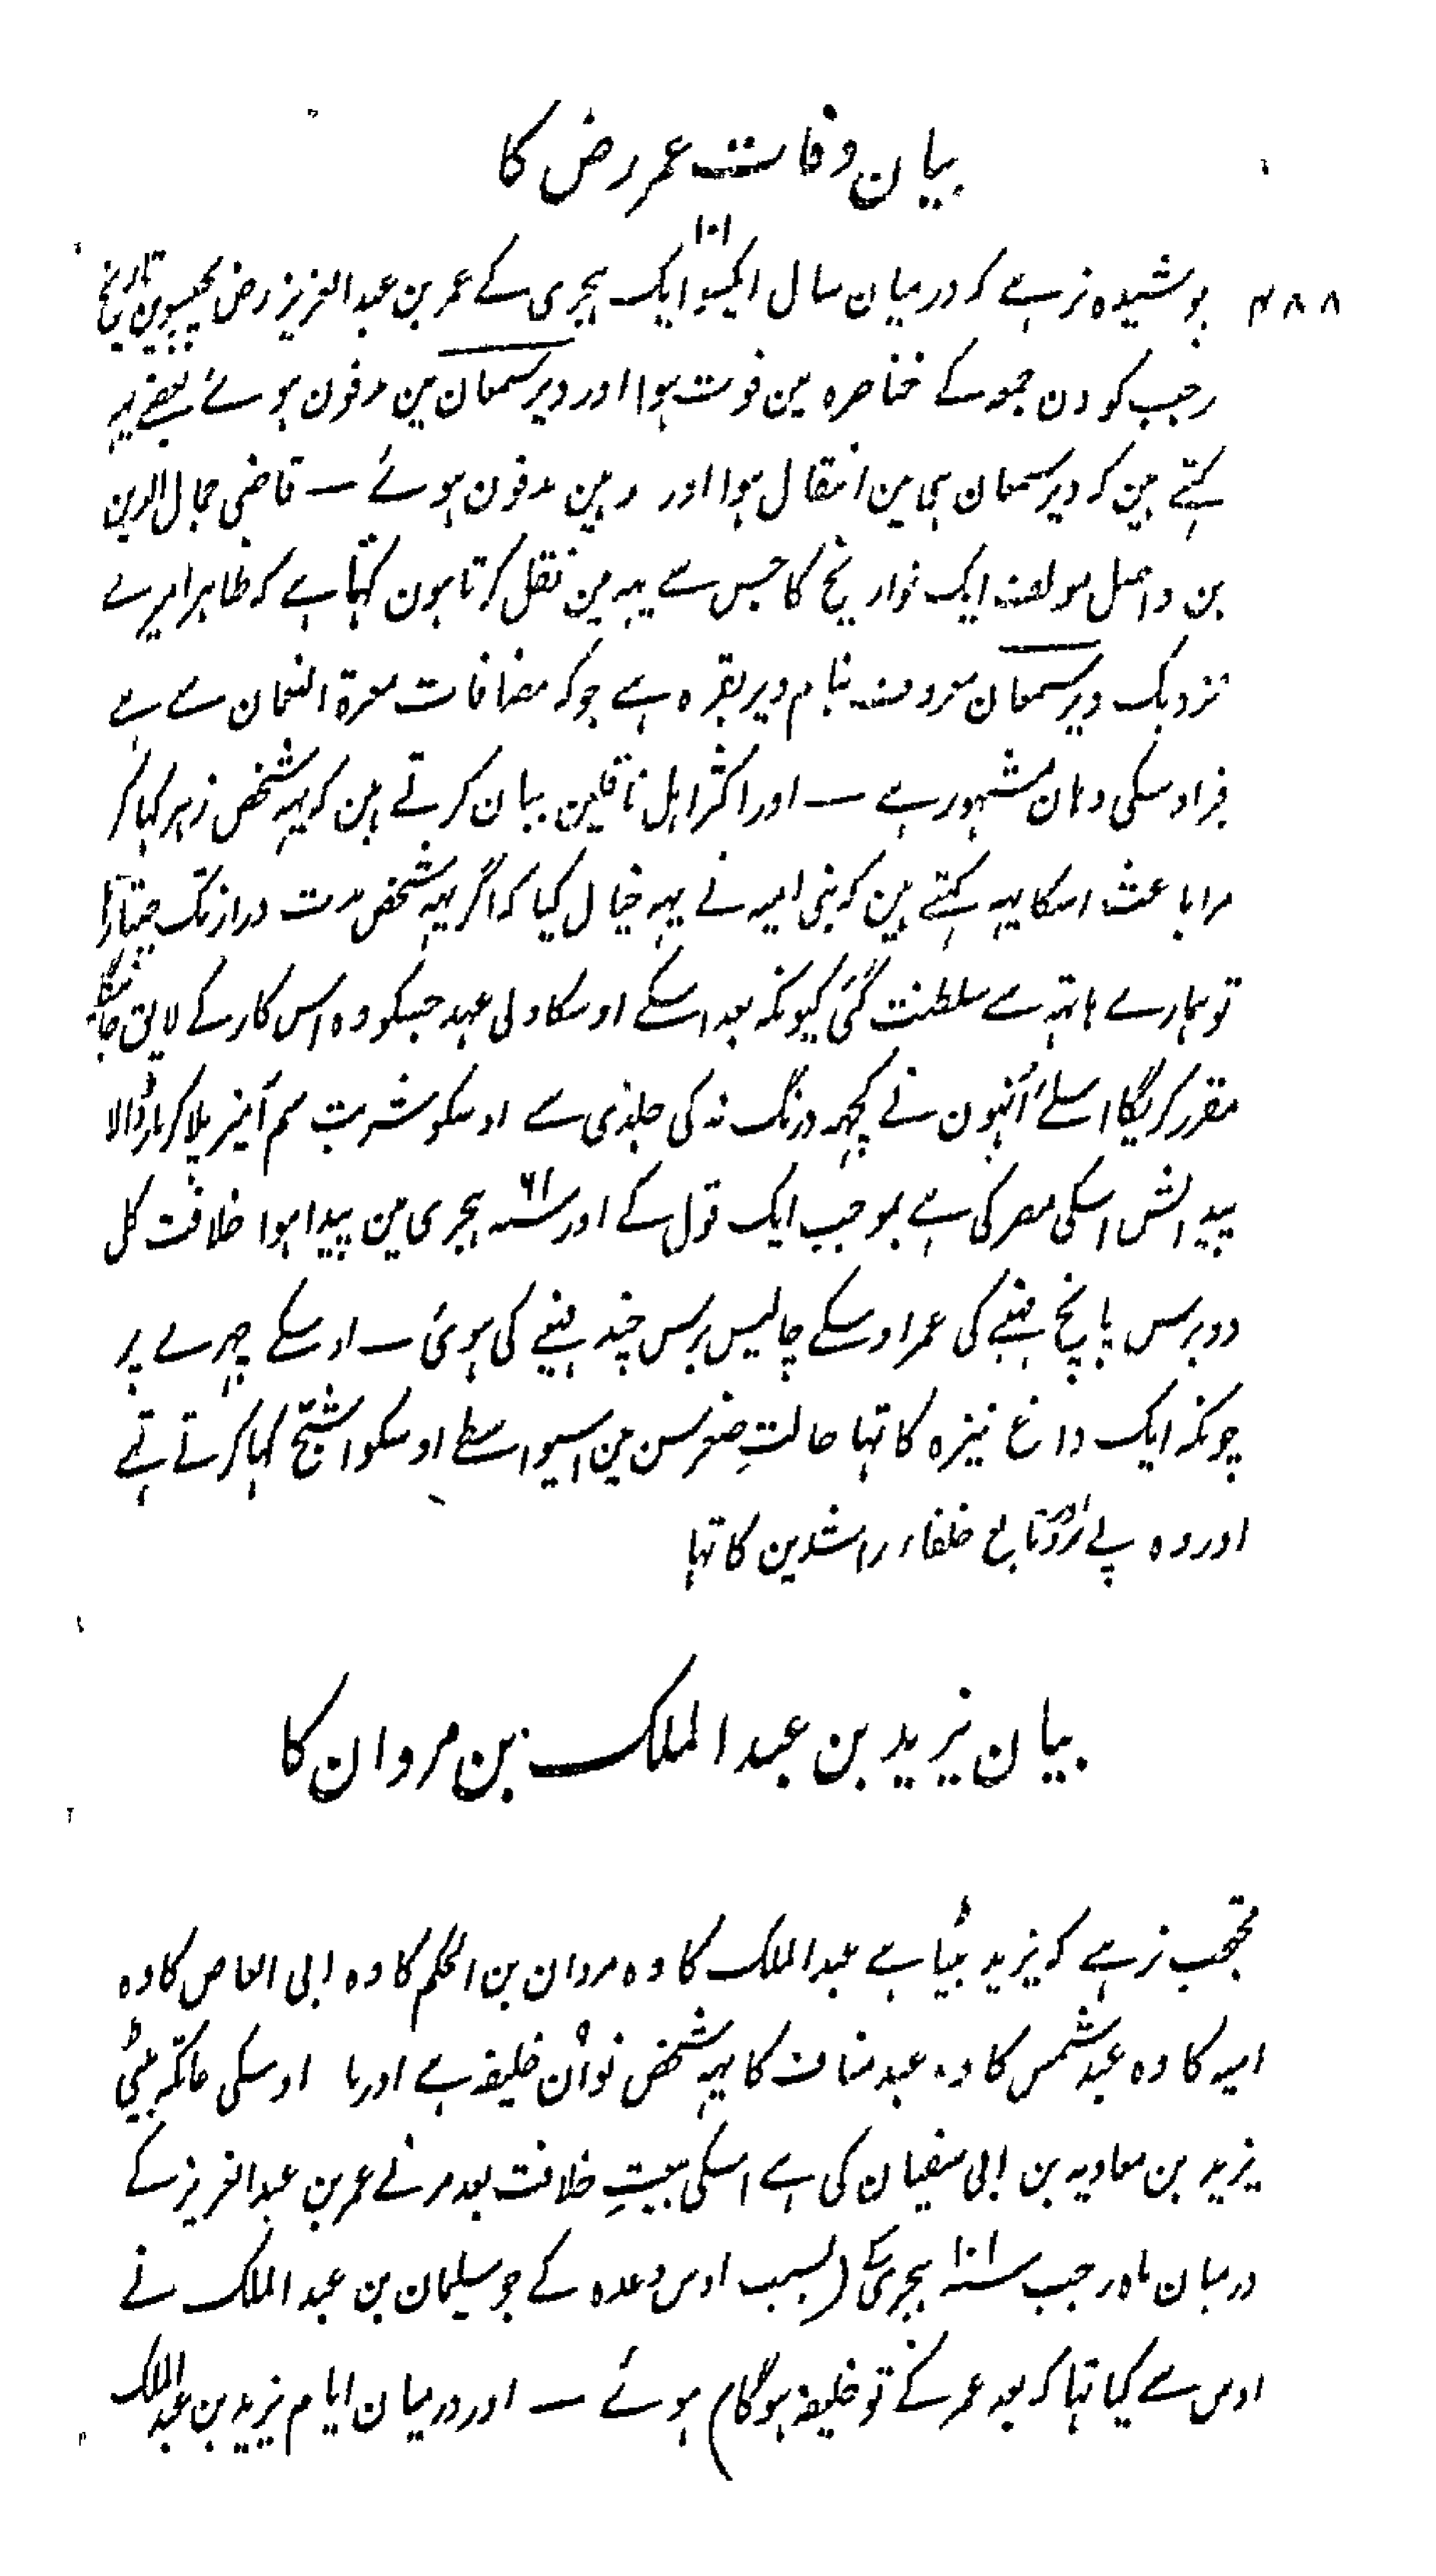 بیان وفات عمر رض کا
۱۰۱
۴۸۸ پوشیدہ نرہے کہ درمیان سال ایکسو ایک ہجری کے عمر بن عبدالعزیز رض پچیسوین تاریخ
رجب کو دن جمعہ کے خناصرہ مین فوت ہوا اور دیر سمعان مین مدفون ہوئے بعضے یہہ
کہتے ہین کہ دیر سمعان ہی مین انتقال ہوا اور وہین مدفون ہوئے — قاضی جمال الدین
بن واصل مولف ایک تواریخ کا جس سے یہہ مین نقل کرتا ہون کہتا ہے کہ ظاہرا میرے
نزدیک دیر سمعان معروف بنام دیر بقرہ ہے جو کہ مضافات معرۃ النعمان سے ہے
مزار اوسکی وہان مشہور ہے — اور اکثر اہل ناقلین بیان کرتے ہین کہ یہہ شخص زہر کہا کر
مرا باعث اسکا یہہ کہتے ہین کہ بنی امیہ نے یہہ خیال کیا کہ اگر یہہ شخص مدت دراز تک جیتا رہا
تو ہمارے ہاتہہ سے سلطنت گئی کیونکہ بعد اسکے اوسکا ولی عہد جسکو وہ اس کار کے لایق جانیگا
مقرر کریگا اسلئے اُنہون نے کچہہ درنگ نہ کی جلدی سے اوسکو شربت سم آمیز پلا کر مار ڈالا
پیدائش اسکی مصر کی ہے بموجب ایک قول کے اور سنہ ۶۱ ہجری مین پیدا ہوا خلافت کل
دو برس پانچ مہینے کی عمر اوسکے چالیس برس چند مہینے کی ہوئی — اوسکے چہرے پر
چونکہ ایک داغ نیزہ کا تہا حالتِ صغر سن مین اسیواسطے اوسکو اشج کہا کرتے تہے
اور وہ پے رو اور تابع خلفاء راشدین کا تہا
بیان یزید بن عبد الملک بن مروان کا
محتجب نرہے کہ یزید بیٹا ہے عبدالملک کا وہ مروان بن الحکم کا وہ ابی العاص کا وہ
امیہ کا وہ عبد شمس کا وہ عبد مناف کا یہہ شخص نوان خلیفہ ہے اور ما اوسکی عاتکہ بیٹی
یزید بن معاویہ بن ابی سفیان کی ہے اسکی بیعتِ خلافت بعد مرنے عمر بن عبد العزیز کے
درمیان ماہ رجب سنہ ۱۰۱ ہجری کے (بسبب اوس وعدہ کے جو سلیمان بن عبد الملک نے
اوس سے کیا تہا کہ بعد عمر کے تو خلیفہ ہوگا) ہوئے — اور درمیان ایام یزید بن عبد الملک